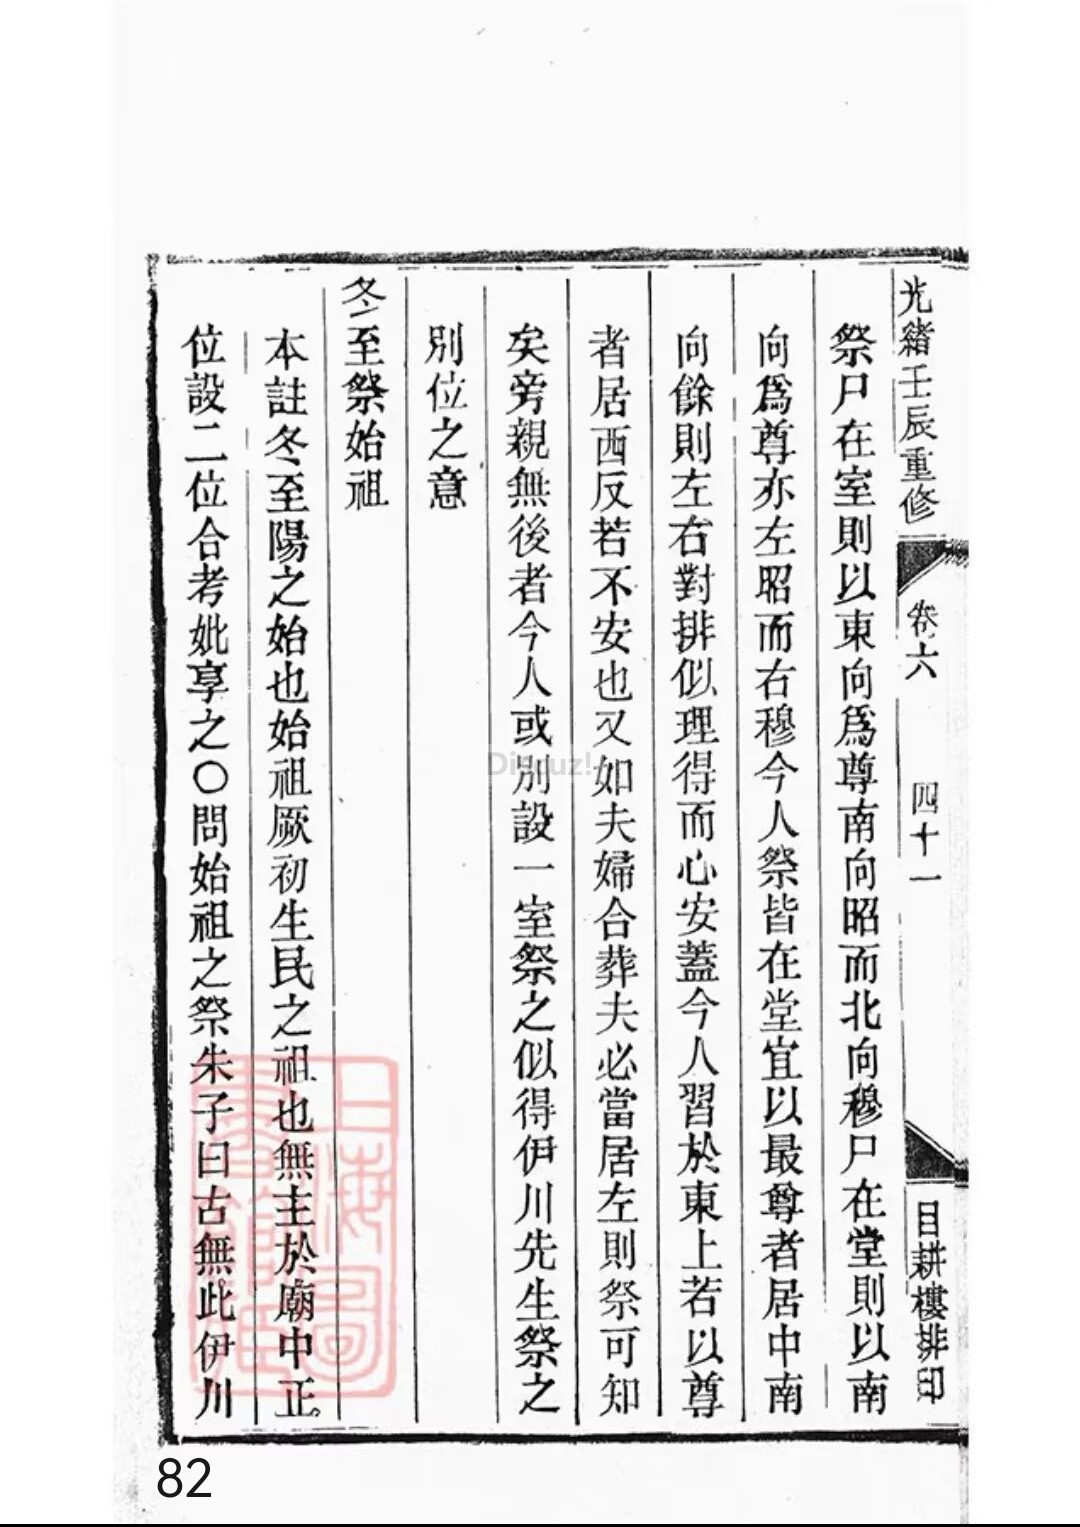 光緒壬辰重修
卷六
四十一
目耕樓排印
祭尸在室則以東向爲尊南向昭而北向穆尸在堂則以南
向爲尊亦左昭而右穆今人祭皆在堂宜以最尊者居中南
向餘則左右對排似理得而心安蓋今人習於東上若以尊
者居西反若不安也又如夫婦合葬夫必當居左則祭可知
矣旁親無後者今人或別設一室祭之似得伊川先生祭之
別位之意
冬至祭始祖
本註冬至陽之始也始祖厥初生民之祖也無主於廟中正
位設二位合考妣享之〇問始祖之祭朱子曰古無此伊川
上海圖
書館藏
Discuz!
82